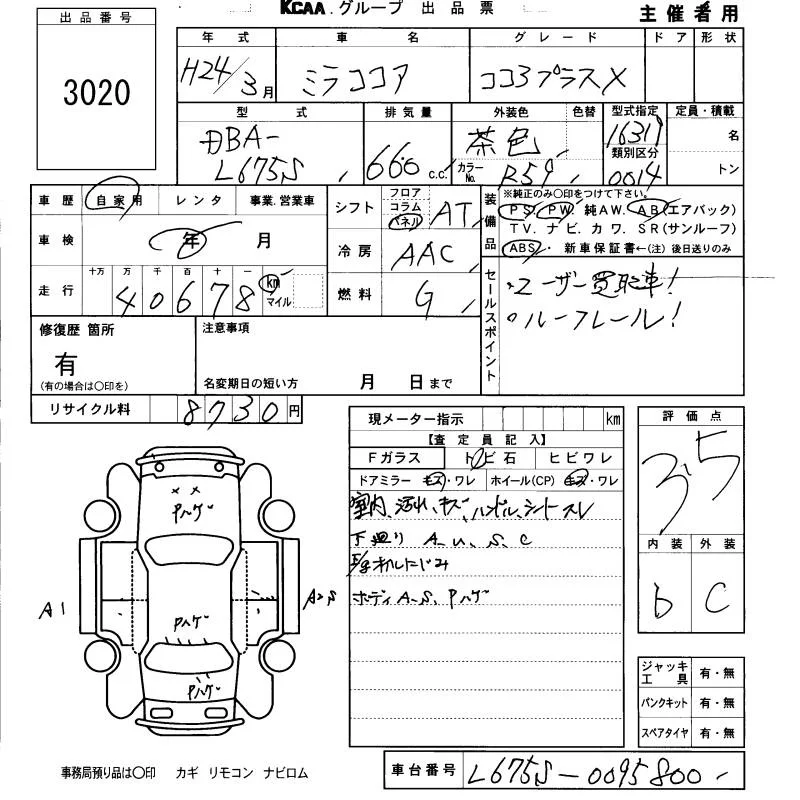 KCAA.グループ 出品票
主催者用
出品番号
3020
年式 車名 グレード ドア 形状
H24/3月 ミラココア ココアプラスX
型式 排気量 外装色 色替 型式指定 定員・積載
DBA-
L675S 660 c.c. 茶色 カラーNo. R59 16317 類別区分 0014 名 トン
車歴 自家用 レンタ 事業.営業車
車検 年 月
走行 十万 万 千 百 十 一
40678 km マイル
シフト フロア コラム パネル AT
冷房 AAC
燃料 G
装備品 ※純正のみ○印をつけて下さい。
PS. PW. 純AW. AB(エアバック)
TV. ナビ. カワ. SR(サンルーフ)
ABS・ 新車保証書←(注)後日送りのみ
セールスポイント
ユーザー買取車!
ルーフレール!
修復歴 箇所
有
(有の場合は○印を)
注意事項
名変期日の短い方 月 日まで
リサイクル料 8730円
現メーター指示 km
【査定員記入】
Fガラス トビ石 ヒビワレ
ドアミラー キズ・ワレ ホイール(CP) キズ・ワレ
室内、汚れ、キズ ハンドル、シートスレ
下廻り A、U、S、C
オイルにじみ
ボディ A、S、Pハゲ
評価点
3.5
内装 外装
b C
Pハゲ
A1
A2S
Pハゲ
Pハゲ
ジャッキ工具 有・無
パンクキット 有・無
スペアタイヤ 有・無
事務局預り品は○印 カギ リモコン ナビロム
車台番号 L675S-0095800